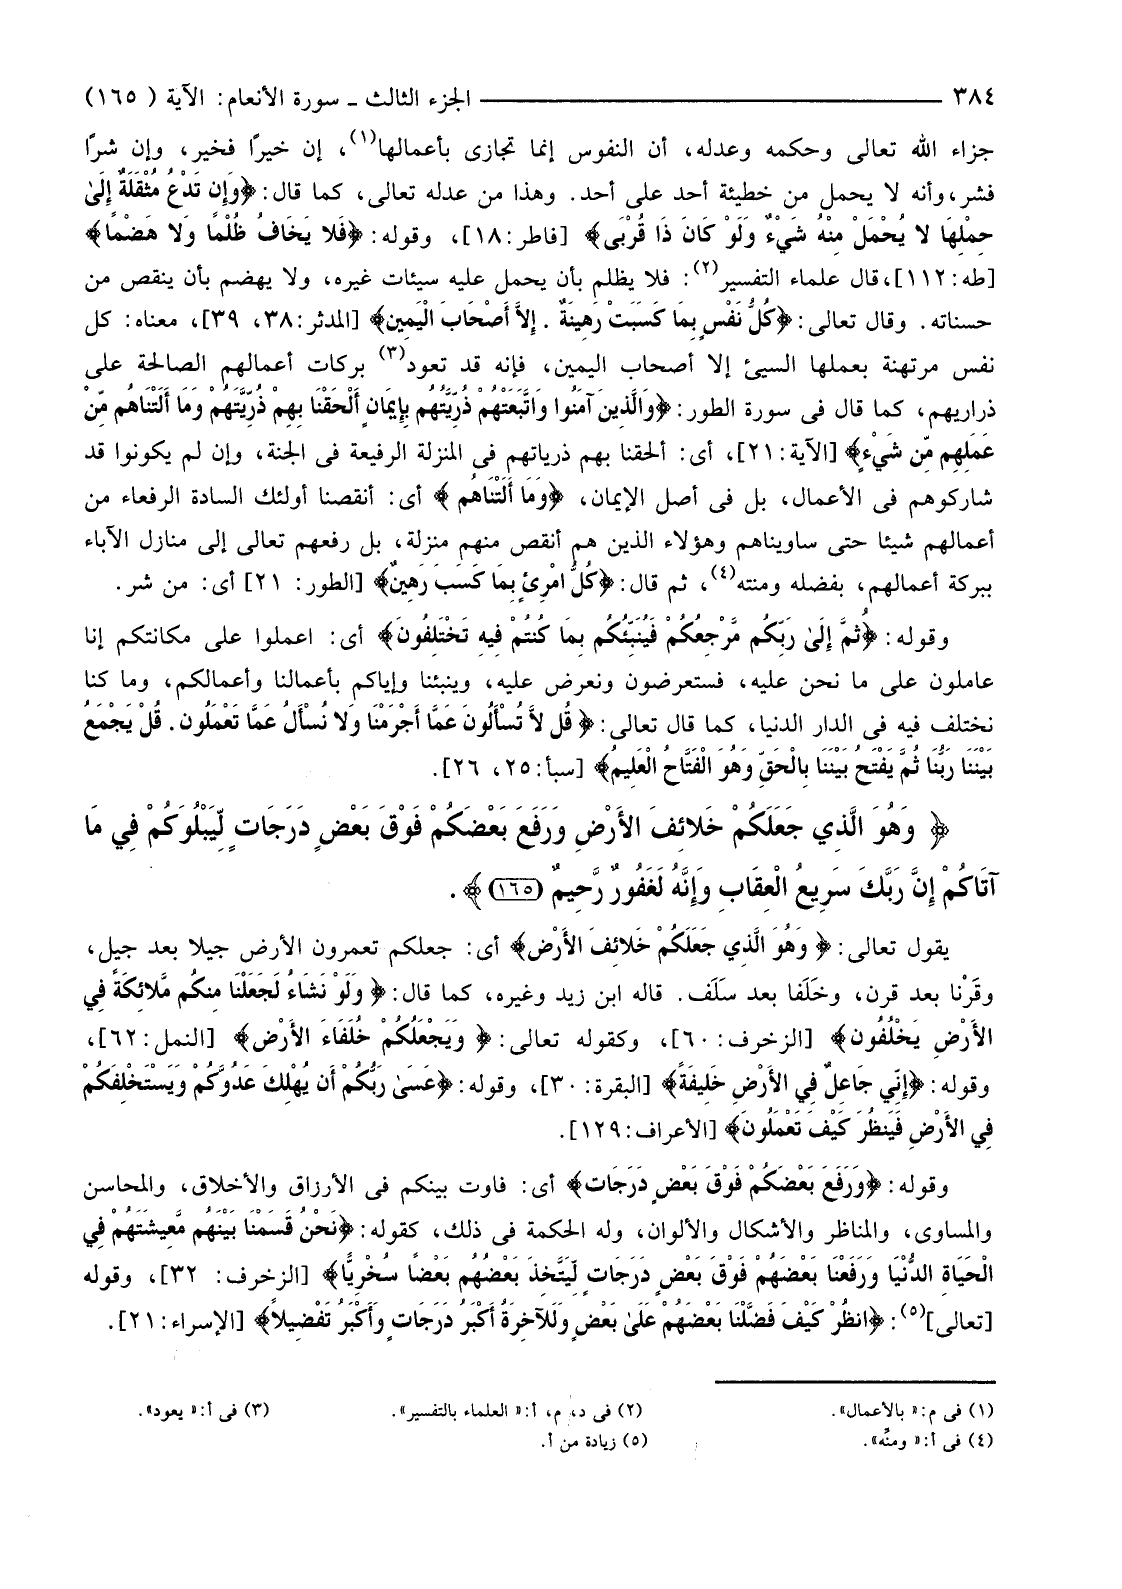 ٣٨٤ ــــــــــــــــ الجزء الثالث ـ سورة الأنعام: الآية ( ١٦٥)
جزاء الله تعالى وحكمه وعدله، أن النفوس إنما تجازى بأعمالها(١)، إن خيرًا فخير، وإن شرًا
فشر،وأنه لا يحمل من خطيئة أحد على أحد. وهذا من عدله تعالى، كما قال: ﴿وَإِن تَدْعُ مُثْقَلَةٌ إِلَىٰ
حِمْلِهَا لا يُحْمَلْ مِنْهُ شَيْءٌ وَلَوْ كَانَ ذَا قُرْبَى﴾ [فاطر:١٨]، وقوله: ﴿فَلا يَخَافُ ظُلْمًا وَلا هَضْمًا﴾
[طه:١١٢]،قال علماء التفسير(٢): فلا يظلم بأن يحمل عليه سيئات غيره، ولا يهضم بأن ينقص من
حسناته. وقال تعالى: ﴿كُلُّ نَفْسٍ بِمَا كَسَبَتْ رَهِينَةٌ . إِلاَّ أَصْحَابَ الْيَمِينِ﴾ [المدثر:٣٨، ٣٩]، معناه: كل
نفس مرتهنة بعملها السيئ إلا أصحاب اليمين، فإنه قد تعود(٣) بركات أعمالهم الصالحة على
ذراريهم، كما قال فى سورة الطور: ﴿وَالَّذِينَ آمَنُوا وَاتَّبَعَتْهُمْ ذُرِّيَّتُهُم بِإِيمَانٍ أَلْحَقْنَا بِهِمْ ذُرِّيَّتَهُمْ وَمَا أَلَتْنَاهُم مِّنْ
عَمَلِهِم مِّن شَيْءٍ﴾ [الآية:٢١]، أى: ألحقنا بهم ذرياتهم فى المنزلة الرفيعة فى الجنة، وإن لم يكونوا قد
شاركوهم فى الأعمال، بل فى أصل الإيمان، ﴿وَمَا أَلَتْنَاهُم ﴾ أى: أنقصنا أولئك السادة الرفعاء من
أعمالهم شيئا حتى ساويناهم وهؤلاء الذين هم أنقص منهم منزلة، بل رفعهم تعالى إلى منازل الآباء
ببركة أعمالهم، بفضله ومنته(٤)، ثم قال: ﴿كُلُّ امْرِئٍ بِمَا كَسَبَ رَهِينٌ﴾ [الطور: ٢١] أى: من شر.
وقوله: ﴿ثُمَّ إِلَىٰ رَبِّكُم مَّرْجِعُكُمْ فَيُنَبِّئُكُم بِمَا كُنتُمْ فِيهِ تَخْتَلِفُونَ﴾ أى: اعملوا على مكانتكم إنا
عاملون على ما نحن عليه، فستعرضون ونعرض عليه، وينبئنا وإياكم بأعمالنا وأعمالكم، وما كنا
نختلف فيه فى الدار الدنيا، كما قال تعالى: ﴿ قُل لاَّ تُسْأَلُونَ عَمَّا أَجْرَمْنَا وَلا نُسْأَلُ عَمَّا تَعْمَلُون . قُلْ يَجْمَعُ
بَيْنَنَا رَبُّنَا ثُمَّ يَفْتَحُ بَيْنَنَا بِالْحَقِّ وَهُوَ الْفَتَّاحُ الْعَلِيمُ﴾ [سبأ:٢٥، ٢٦].
﴿ وَهُوَ الَّذِي جَعَلَكُمْ خَلائِفَ الأَرْضِ وَرَفَعَ بَعْضَكُمْ فَوْقَ بَعْضٍ دَرَجَاتٍ لِّيَبْلُوَكُمْ فِي مَا
آتَاكُمْ إِنَّ رَبَّكَ سَرِيعُ الْعِقَابِ وَإِنَّهُ لَغَفُورٌ رَّحِيمٌ (١٦٥)﴾ .
يقول تعالى: ﴿ وَهُوَ الَّذِي جَعَلَكُمْ خَلائِفَ الأَرْضِ﴾ أى: جعلكم تعمرون الأرض جيلا بعد جيل،
وقَرْنا بعد قرن، وخَلَفا بعد سَلَف. قاله ابن زيد وغيره، كما قال: ﴿ وَلَوْ نَشَاءُ لَجَعَلْنَا مِنكُم مَّلائِكَةً فِي
الأَرْضِ يَخْلُفُونَ﴾ [الزخرف:٦٠]، وكقوله تعالى: ﴿ وَيَجْعَلُكُمْ خُلَفَاءَ الأَرْضِ﴾ [النمل:٦٢]،
وقوله: ﴿إِنِّي جَاعِلٌ فِي الأَرْضِ خَلِيفَةً﴾ [البقرة:٣٠]، وقوله: ﴿عَسَىٰ رَبُّكُمْ أَن يُهْلِكَ عَدُوَّكُمْ وَيَسْتَخْلِفَكُمْ
فِي الأَرْضِ فَيَنظُرَ كَيْفَ تَعْمَلُونَ﴾ [الأعراف:١٢٩].
وقوله: ﴿وَرَفَعَ بَعْضَكُمْ فَوْقَ بَعْضٍ دَرَجَاتٍ﴾ أى: فاوت بينكم فى الأرزاق والأخلاق، والمحاسن
والمساوى، والمناظر والأشكال والألوان، وله الحكمة فى ذلك، كقوله: ﴿نَحْنُ قَسَمْنَا بَيْنَهُم مَّعِيشَتَهُمْ فِي
الْحَيَاةِ الدُّنْيَا وَرَفَعْنَا بَعْضَهُمْ فَوْقَ بَعْضٍ دَرَجَاتٍ لِّيَتَّخِذَ بَعْضُهُم بَعْضًا سُخْرِيًّا﴾ [الزخرف: ٣٢]، وقوله
[تعالى](٥): ﴿انظُرْ كَيْفَ فَضَّلْنَا بَعْضَهُمْ عَلَىٰ بَعْضٍ وَلَلآخِرَةُ أَكْبَرُ دَرَجَاتٍ وَأَكْبَرُ تَفْضِيلاً﴾ [الإسراء:٢١].
(١) فى م:« بالأعمال». (٢) فى د، م، أ:« العلماء بالتفسير». (٣) فى أ:« يعود».
(٤) فى أ:« ومنِّه». (٥) زيادة من أ.